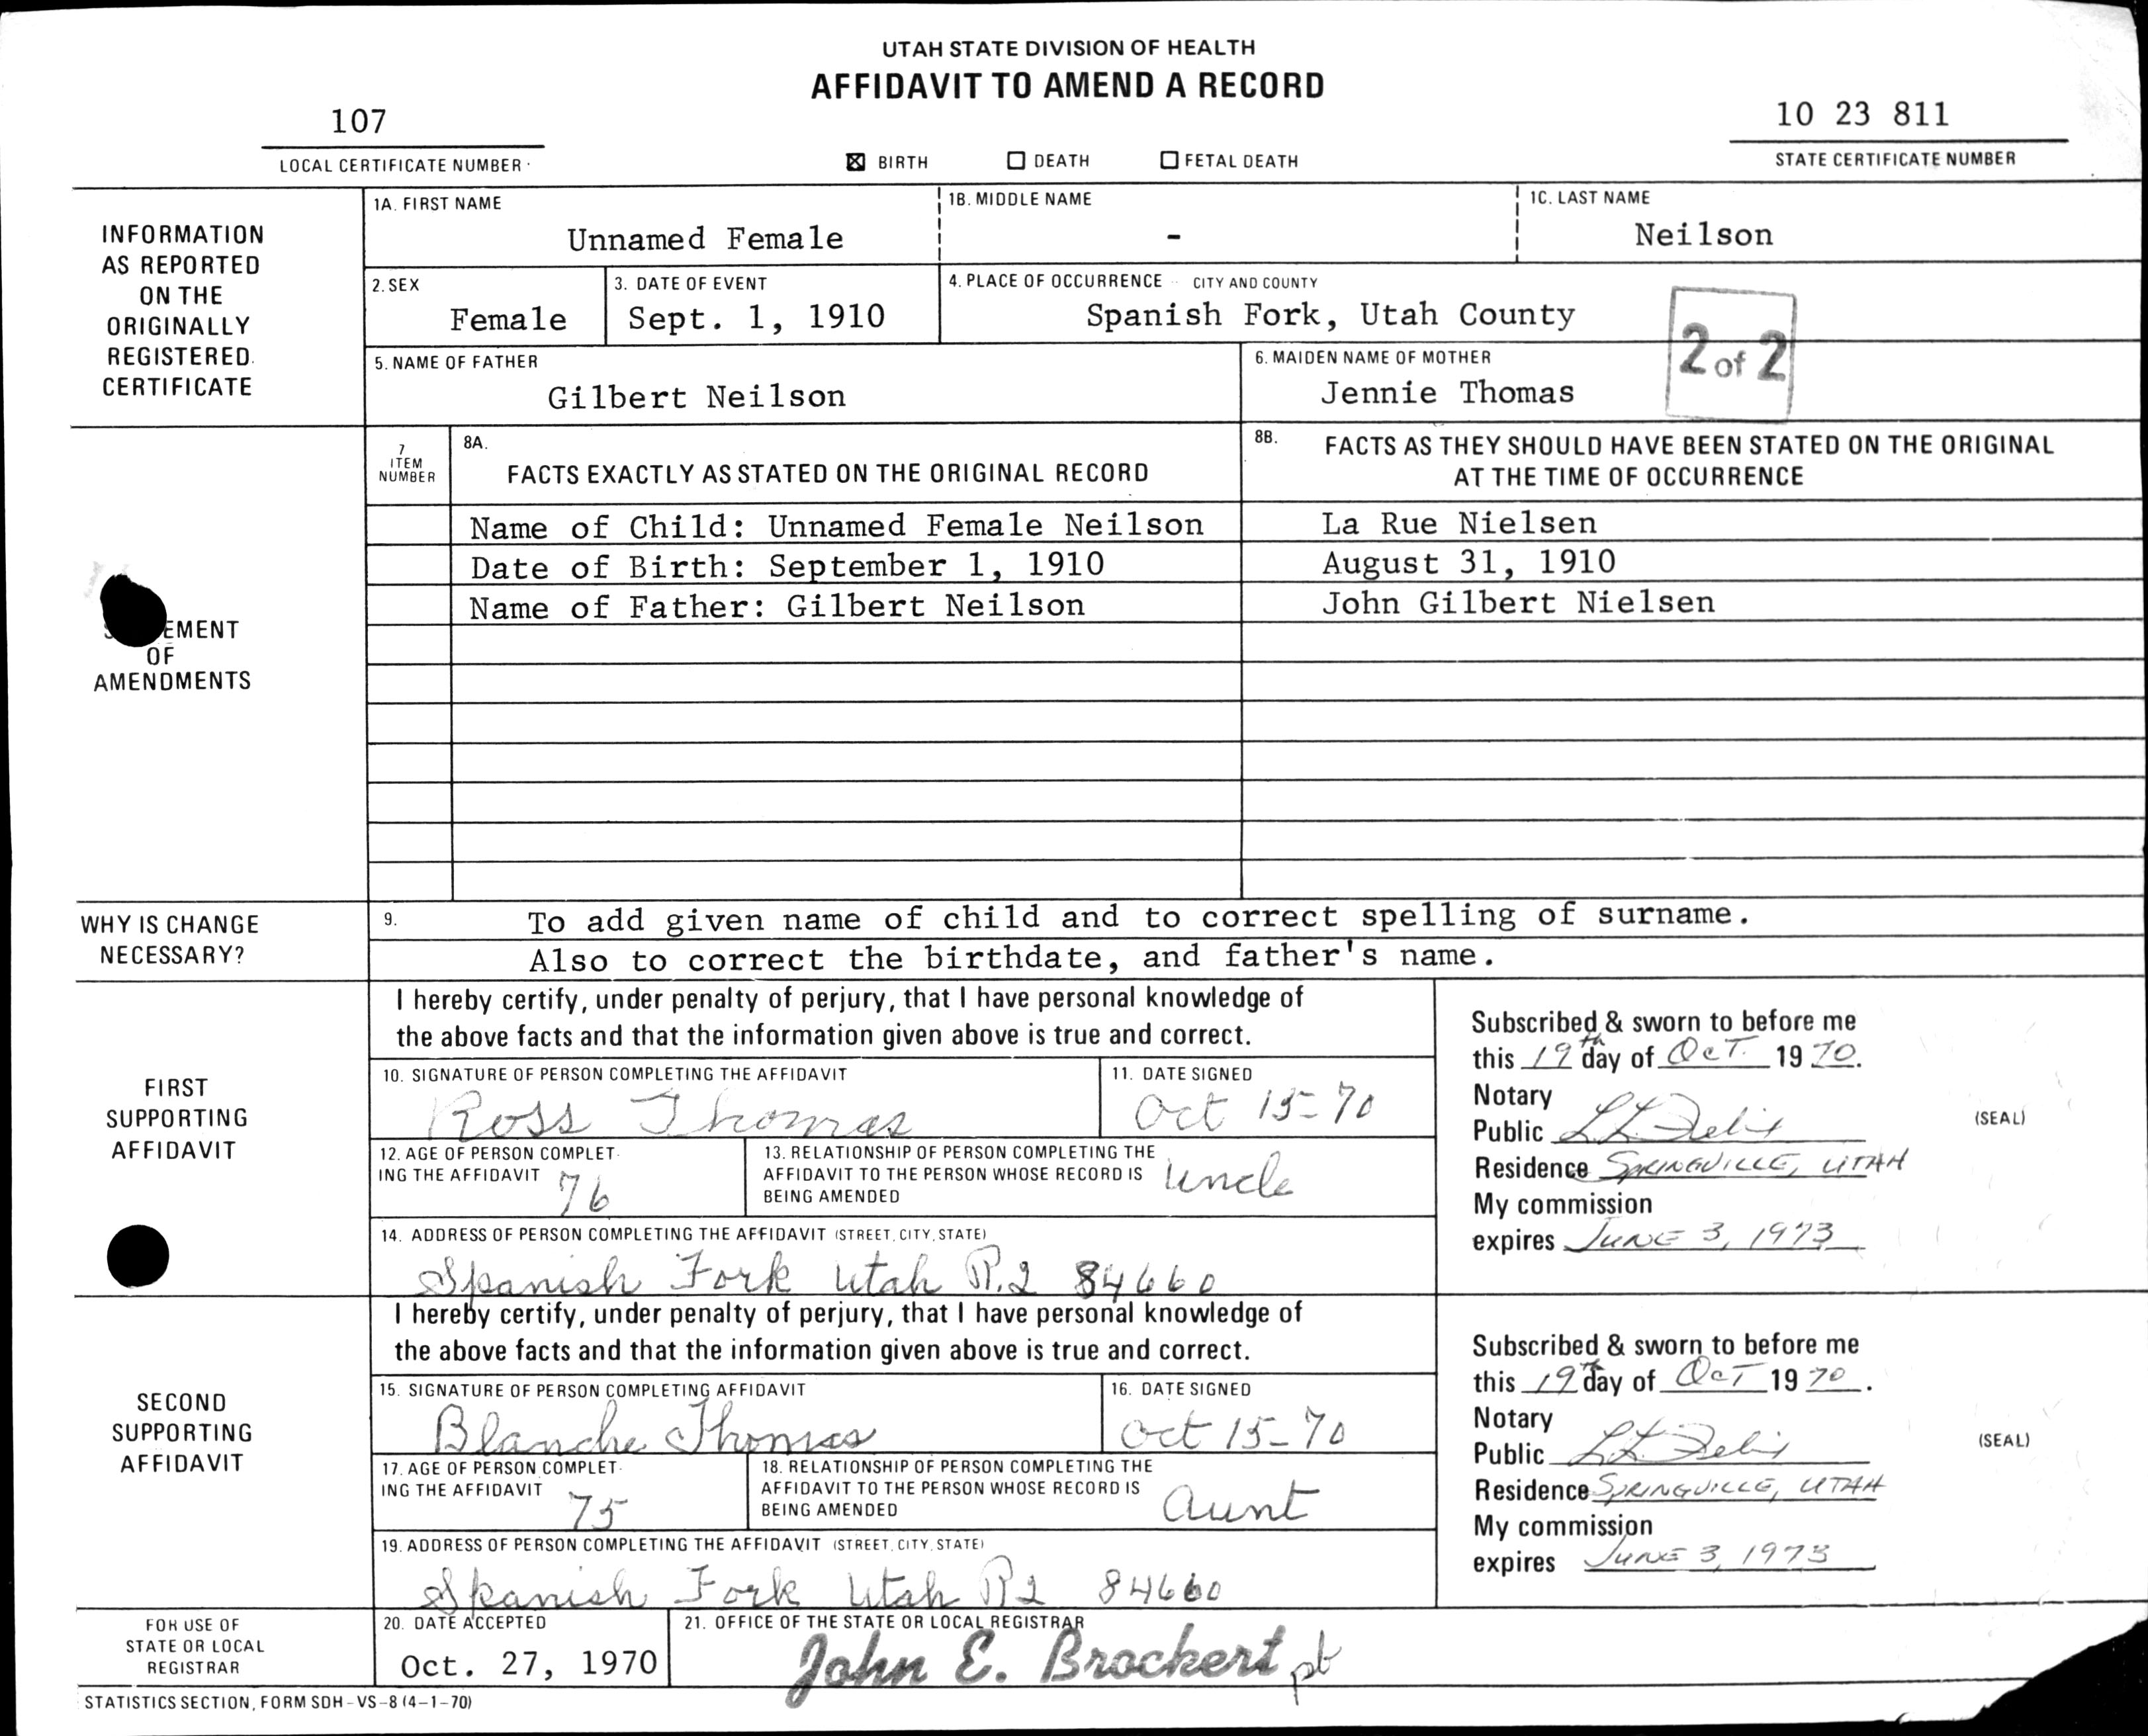 UTAH STATE DIVISION OF HEALTH
AFFIDAVIT TO AMEND A RECORD
107
LOCAL CERTIFICATE NUMBER
☒ BIRTH ☐ DEATH ☐ FETAL DEATH
10 23 811
STATE CERTIFICATE NUMBER
INFORMATION
AS REPORTED
ON THE
ORIGINALLY
REGISTERED
CERTIFICATE
1A. FIRST NAME
Unnamed Female
1B. MIDDLE NAME
-
1C. LAST NAME
Neilson
2. SEX
Female
3. DATE OF EVENT
Sept. 1, 1910
4. PLACE OF OCCURRENCE CITY AND COUNTY
Spanish Fork, Utah County
2 of 2
5. NAME OF FATHER
Gilbert Neilson
6. MAIDEN NAME OF MOTHER
Jennie Thomas
EMENT
OF
AMENDMENTS
7
ITEM
NUMBER
8A.
FACTS EXACTLY AS STATED ON THE ORIGINAL RECORD
8B. FACTS AS THEY SHOULD HAVE BEEN STATED ON THE ORIGINAL
AT THE TIME OF OCCURRENCE
Name of Child: Unnamed Female Neilson La Rue Nielsen
Date of Birth: September 1, 1910 August 31, 1910
Name of Father: Gilbert Neilson John Gilbert Nielsen
WHY IS CHANGE
NECESSARY?
9. To add given name of child and to correct spelling of surname.
Also to correct the birthdate, and father's name.
FIRST
SUPPORTING
AFFIDAVIT
I hereby certify, under penalty of perjury, that I have personal knowledge of
the above facts and that the information given above is true and correct.
10. SIGNATURE OF PERSON COMPLETING THE AFFIDAVIT
Ross Thomas
11. DATE SIGNED
Oct 15-70
12. AGE OF PERSON COMPLET-
ING THE AFFIDAVIT 76
13. RELATIONSHIP OF PERSON COMPLETING THE
AFFIDAVIT TO THE PERSON WHOSE RECORD IS
BEING AMENDED
Uncle
14. ADDRESS OF PERSON COMPLETING THE AFFIDAVIT (STREET, CITY, STATE)
Spanish Fork Utah R.2 84660
Subscribed & sworn to before me
this 19th day of OCT. 1970.
Notary
Public
(SEAL)
Residence SPRINGVILLE, UTAH
My commission
expires JUNE 3, 1973
SECOND
SUPPORTING
AFFIDAVIT
I hereby certify, under penalty of perjury, that I have personal knowledge of
the above facts and that the information given above is true and correct.
15. SIGNATURE OF PERSON COMPLETING AFFIDAVIT
Blanche Thomas
16. DATE SIGNED
Oct 15-70
17. AGE OF PERSON COMPLET-
ING THE AFFIDAVIT 75
18. RELATIONSHIP OF PERSON COMPLETING THE
AFFIDAVIT TO THE PERSON WHOSE RECORD IS
BEING AMENDED
Aunt
19. ADDRESS OF PERSON COMPLETING THE AFFIDAVIT (STREET, CITY, STATE)
Spanish Fork Utah R2 84660
Subscribed & sworn to before me
this 19th day of OCT 1970.
Notary
Public
(SEAL)
Residence SPRINGVILLE, UTAH
My commission
expires JUNE 3, 1973
FOR USE OF
STATE OR LOCAL
REGISTRAR
20. DATE ACCEPTED
Oct. 27, 1970
21. OFFICE OF THE STATE OR LOCAL REGISTRAR
John E. Brockert pb
STATISTICS SECTION, FORM SDH-VS-8 (4-1-70)